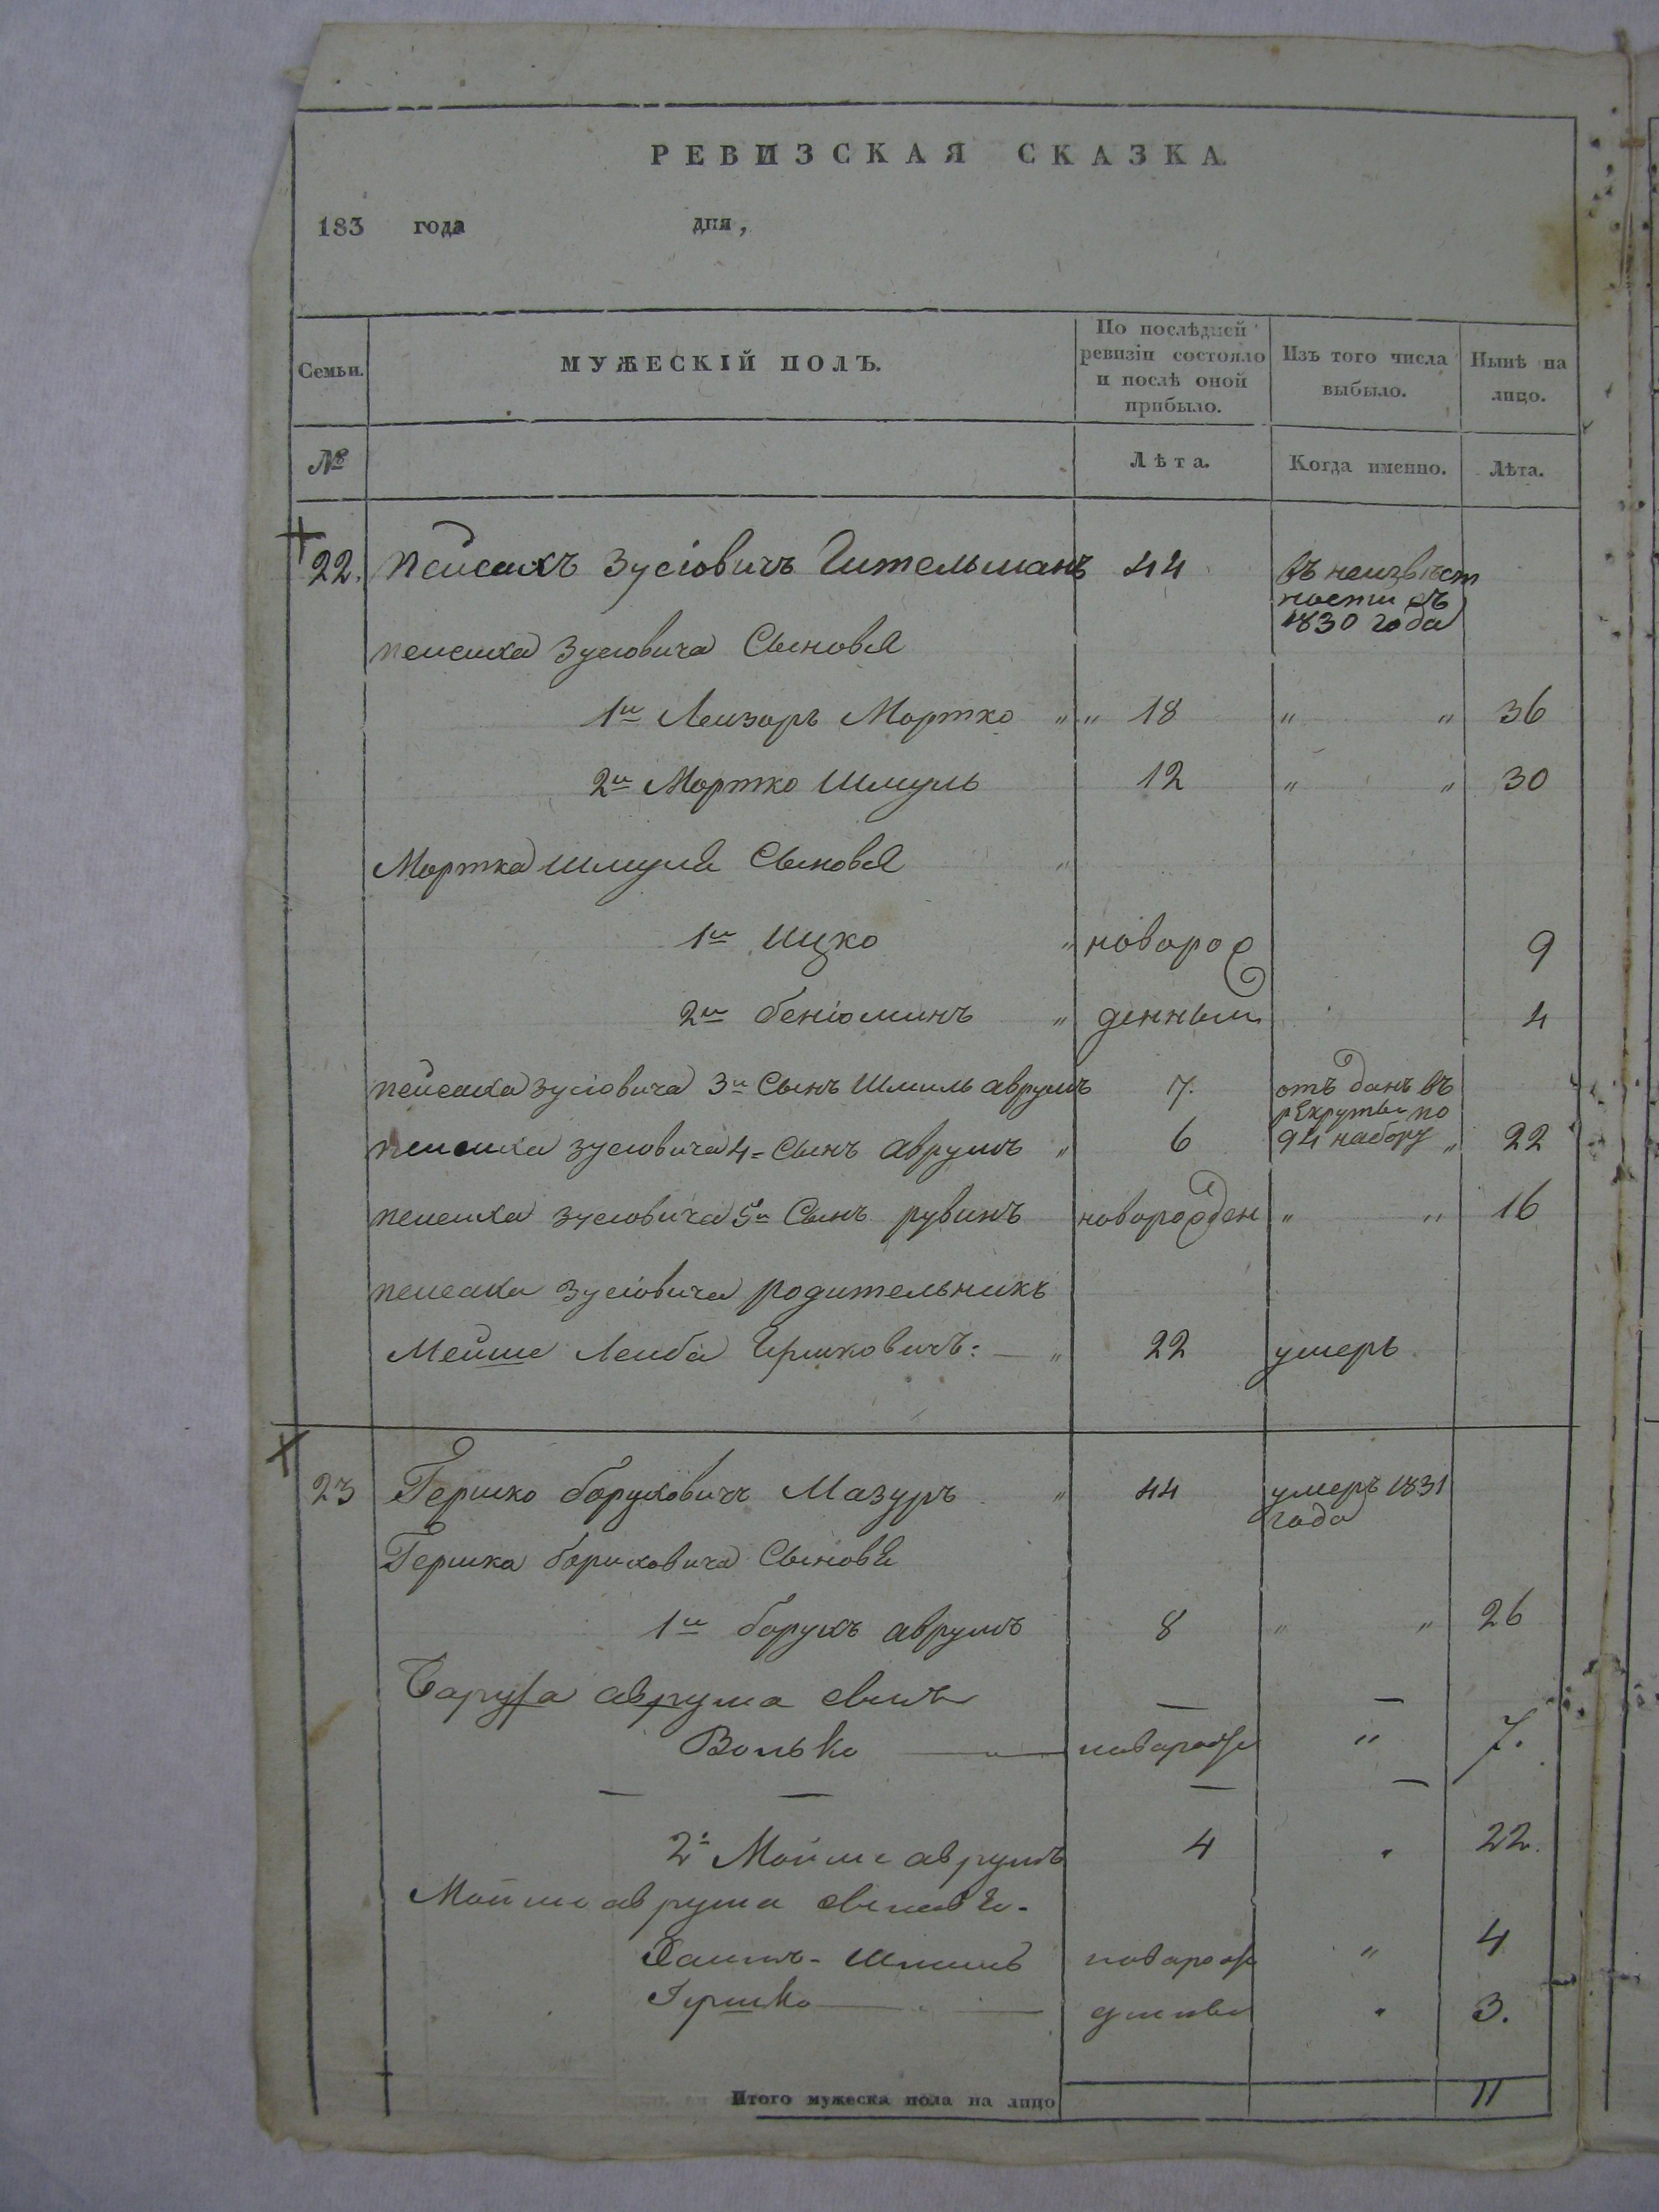 РЕВИЗСКАЯ СКАЗКА
183 года дня,
Семьи. МУЖЕСКІЙ ПОЛЪ. По послѣдней ревизіи состояло и послѣ оной прибыло. Изъ того числа выбыло. Нынѣ на лицо.
№ Лѣта. Когда именно. Лѣта.
22. Пейсахъ Зусіовичъ Гительманъ 44 въ неизвѣст
ности съ
1830 года
пейсаха Зусіовича Сыновья
1й Лейзоръ Мортко " " 18 " " 36
2й Мортко Шмуль 12 " " 30
Мортка Шмуля Сыновья "
1й Ицко " новорож 9
2й беніоминъ " денный 4
пейсаха зусіовича 3й Сынъ Шмиль аврумъ 7. отъ данъ въ
рекруты по
пейсаха зусіовича 4= Сынъ аврумъ " 6 94 набору " 22
пейсаха зусіовича 5й Сынъ рувинъ новорожден " " 16
пейсаха Зусіовича родительникъ
Мейше Лейба Гершковичъ: — " 22 умеръ
23 Гершко боруховичъ Мазуръ " 44 умеръ 1831
года
Гершка боруховича Сыновья
1й борухъ аврумъ 8 " " 26
Баруха аврума сынъ — —
Волько — новорож " 7.
— — — —
2й Мойше аврумъ 4 " 22.
Мойше аврума сыновья.
Хаимъ - Шмиль новорож " 4
Гершко — денные " 3.
Итого мужеска пола на лицо 11